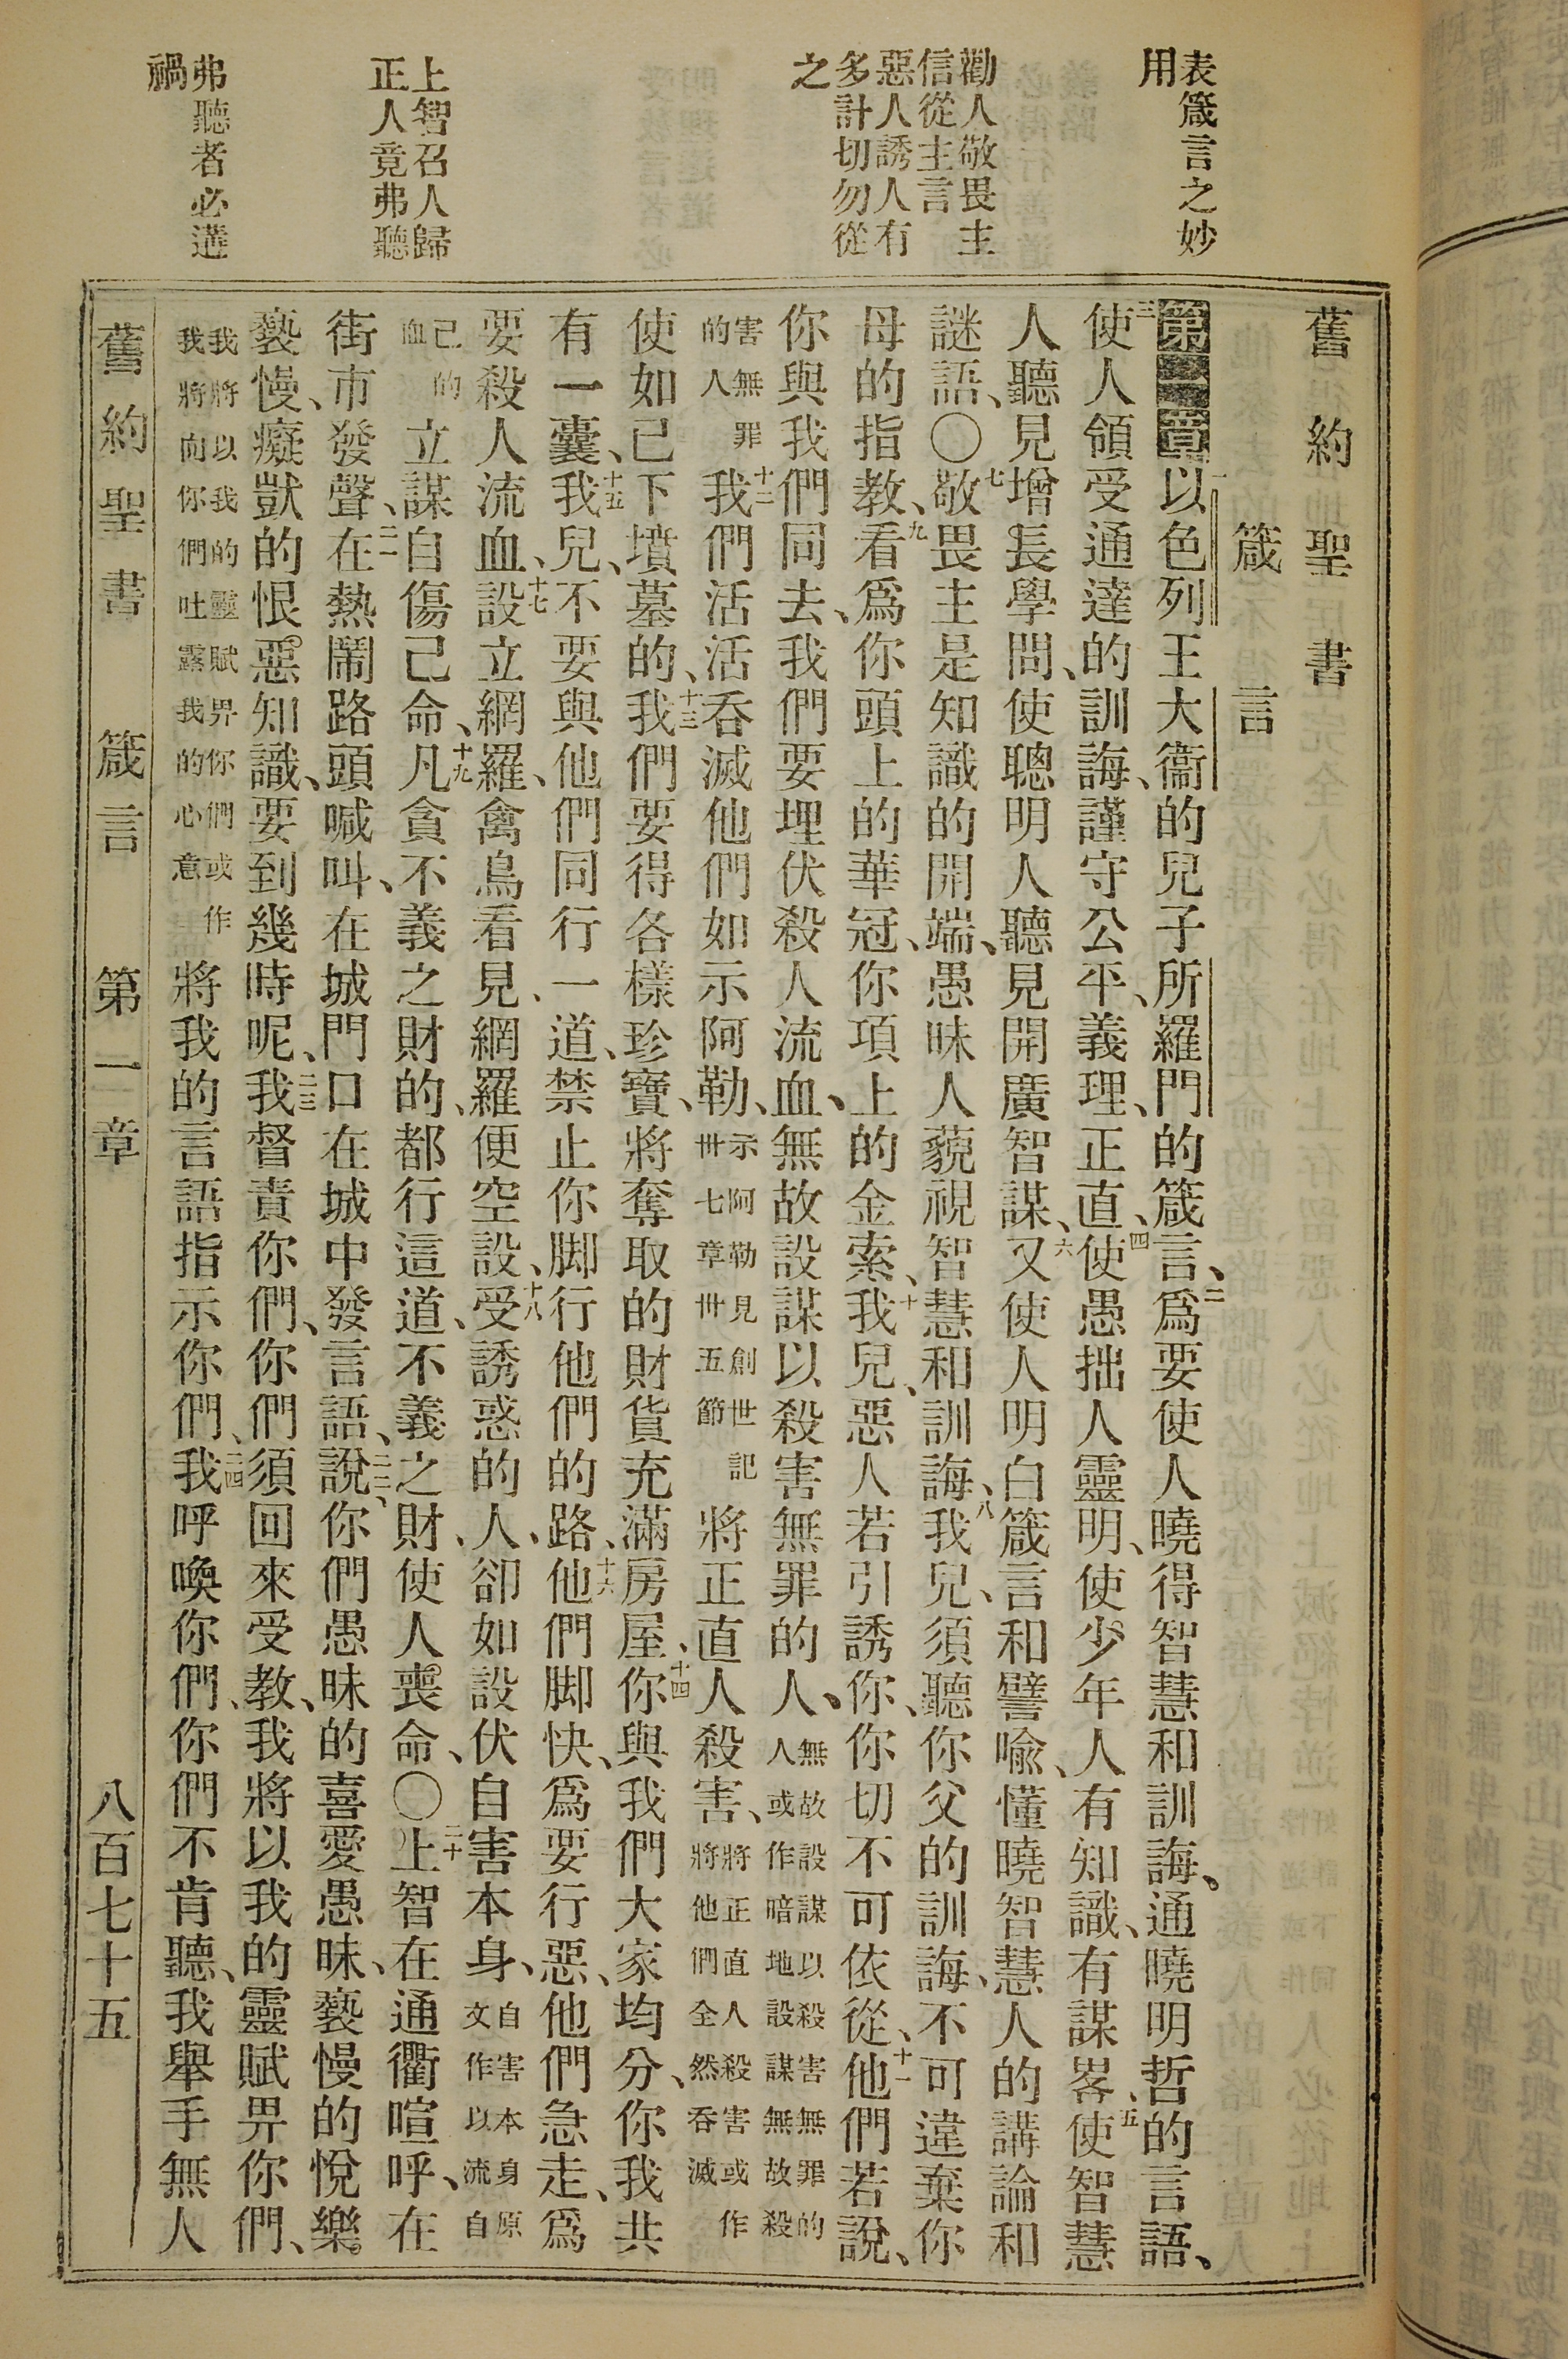 表箴言之妙
用
勸人敬畏主
信從主言
惡人誘人有
多計切勿從
之
上智召人歸
正人竟弗聽
弗聽者必遘
禍
舊約聖書
箴言
第一章一以色列王大衞的兒子所羅門的箴言、二爲要使人曉得智慧和訓誨、通曉明哲的言語、
三使人領受通達的訓誨、謹守公平、義理、正直、四使愚拙人靈明、使少年人有知識、有謀畧、五使智慧
人聽見增長學問、使聰明人聽見開廣智謀、六又使人明白箴言和譬喻、懂曉智慧人的講論和
謎語、〇七敬畏主是知識的開端、愚昧人藐視智慧和訓誨、八我兒、須聽你父的訓誨、不可違棄你
母的指教、九看爲你頭上的華冠、你項上的金索、十我兒、惡人若引誘你、你切不可依從、十一他們若說、
你與我們同去、我們要埋伏殺人流血、無故設謀以殺害無罪的人、無故設謀以殺害無罪的人或作暗地設謀無故殺
害無罪的人十二我們活活吞滅他們如示阿勒、示阿勒見創世記卅七章卅五節將正直人殺害、將正直人殺害或作將他們全然吞滅
使如已下墳墓的、十三我們要得各樣珍寶、將奪取的財貨充滿房屋、十四你與我們大家均分、你我共
有一囊、十五我兒、不要與他們同行一道、禁止你脚行他們的路、十六他們脚快、爲要行惡、他們急走、爲
要殺人流血、十七設立網羅、禽鳥看見、網羅便空設、十八受誘惑的人、卻如設伏自害本身、自害本身原文作以流自
己的血立謀自傷己命、十九凡貪不義之財的、都行這道、不義之財、使人喪命、〇二十上智在通衢喧呼、在
街市發聲、二一在熱鬧路頭喊叫、在城門口在城中發言語、二二說、你們愚昧的喜愛愚昧、褻慢的悅樂
褻慢、癡獃的恨惡知識、要到幾時呢、二三我督責你們、你們須回來受教、我將以我的靈賦畀你們、
我將以我的靈賦畀你們或作我將向你們吐露我的心意將我的言語指示你們、二四我呼喚你們、你們不肯聽、我舉手無人
舊約聖書 箴言 第一章 八百七十五